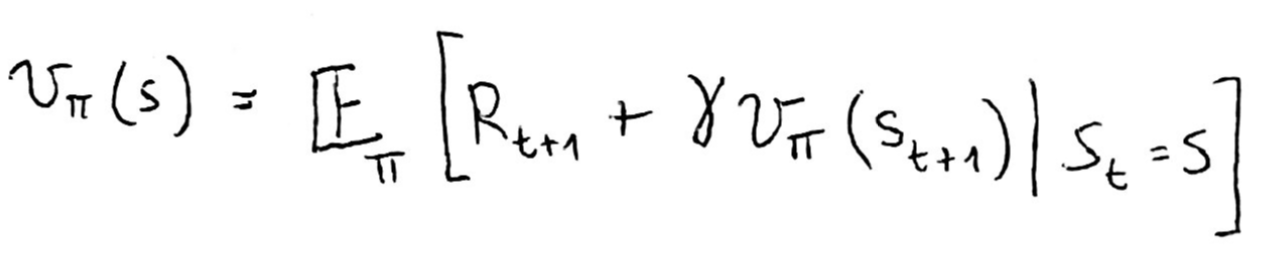 𝑣_π(s) = 𝔼_π [R_{t+1} + γ 𝑣_π(S_{t+1}) | S_t = s]